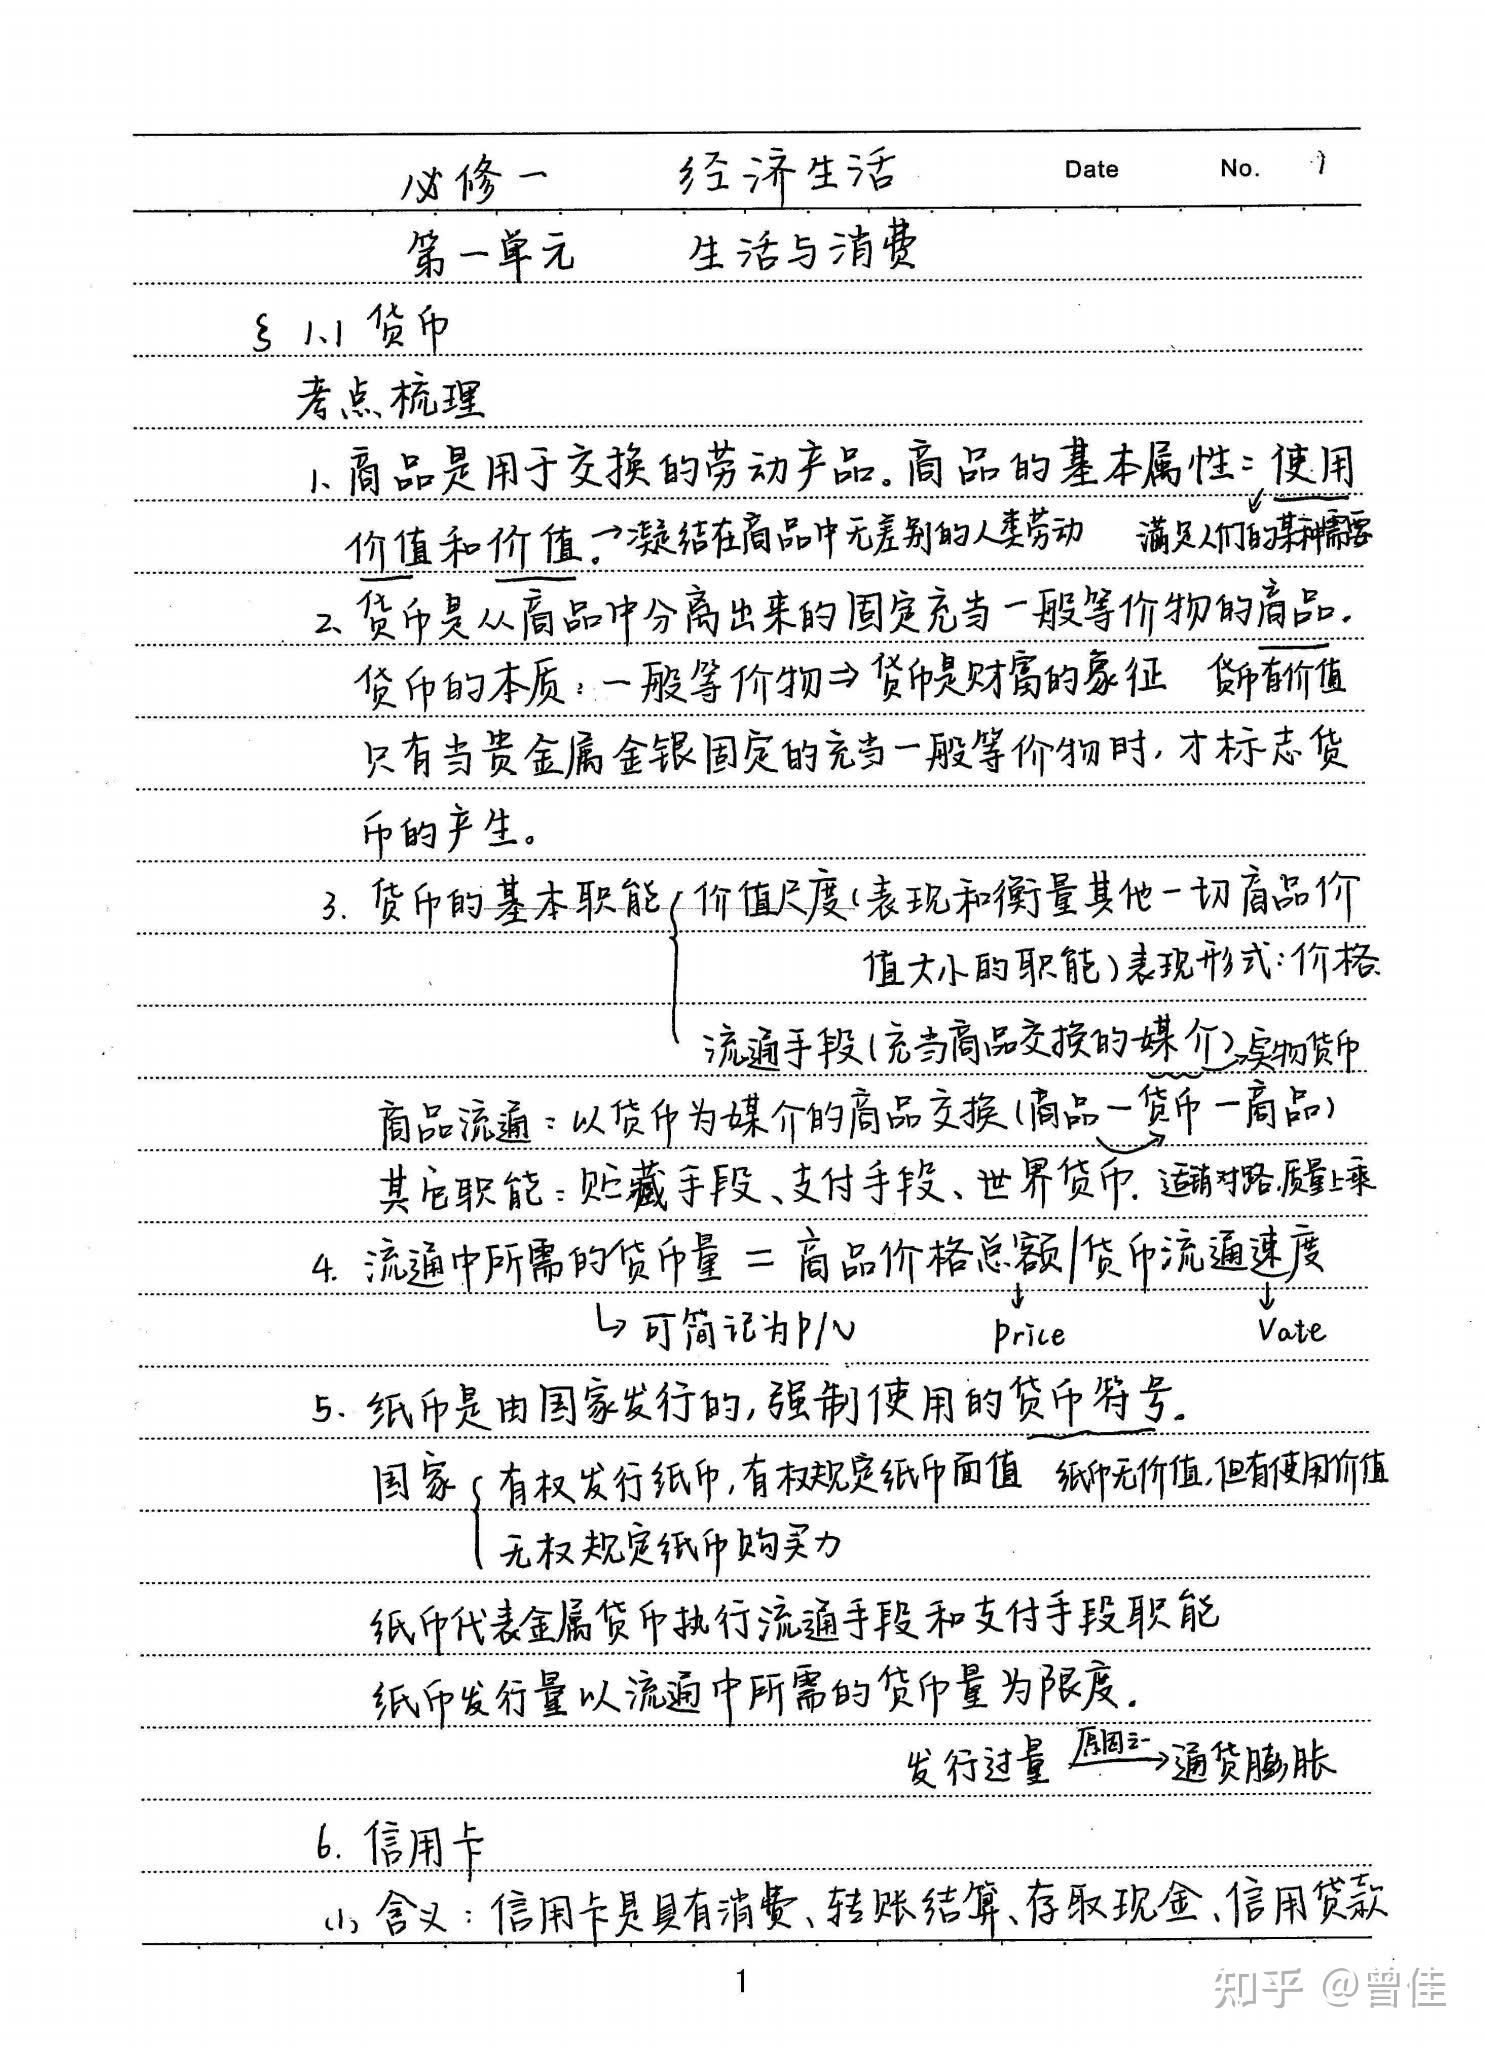 必修一 经济生活 Date No. 1
第一单元 生活与消费
§ 1.1 货币
考点梳理
1、商品是用于交换的劳动产品。商品的基本属性：使用
价值和价值。→凝结在商品中无差别的人类劳动 满足人们的某种需要
2、货币是从商品中分离出来的固定充当一般等价物的商品。
货币的本质：一般等价物⇒货币是财富的象征 货币有价值
只有当贵金属金银固定的充当一般等价物时，才标志货
币的产生。
3. 货币的基本职能{价值尺度(表现和衡量其他一切商品价
值大小的职能)表现形式：价格
流通手段(充当商品交换的媒介)→实物货币
商品流通：以货币为媒介的商品交换(商品—货币—商品)
其它职能：贮藏手段、支付手段、世界货币. 适销对路.质量上乘
4. 流通中所需的货币量 = 商品价格总额/货币流通速度
↳可简记为P/V ↓Price ↓Vate
5. 纸币是由国家发行的，强制使用的货币符号。
国家{有权发行纸币，有权规定纸币面值 纸币无价值，但有使用价值
无权规定纸币购买力
纸币代表金属货币执行流通手段和支付手段职能
纸币发行量以流通中所需的货币量为限度.
发行过量 原因之一→通货膨胀
6. 信用卡
(1) 含义：信用卡是具有消费、转账结算、存取现金、信用贷款
1
知乎 @曾佳